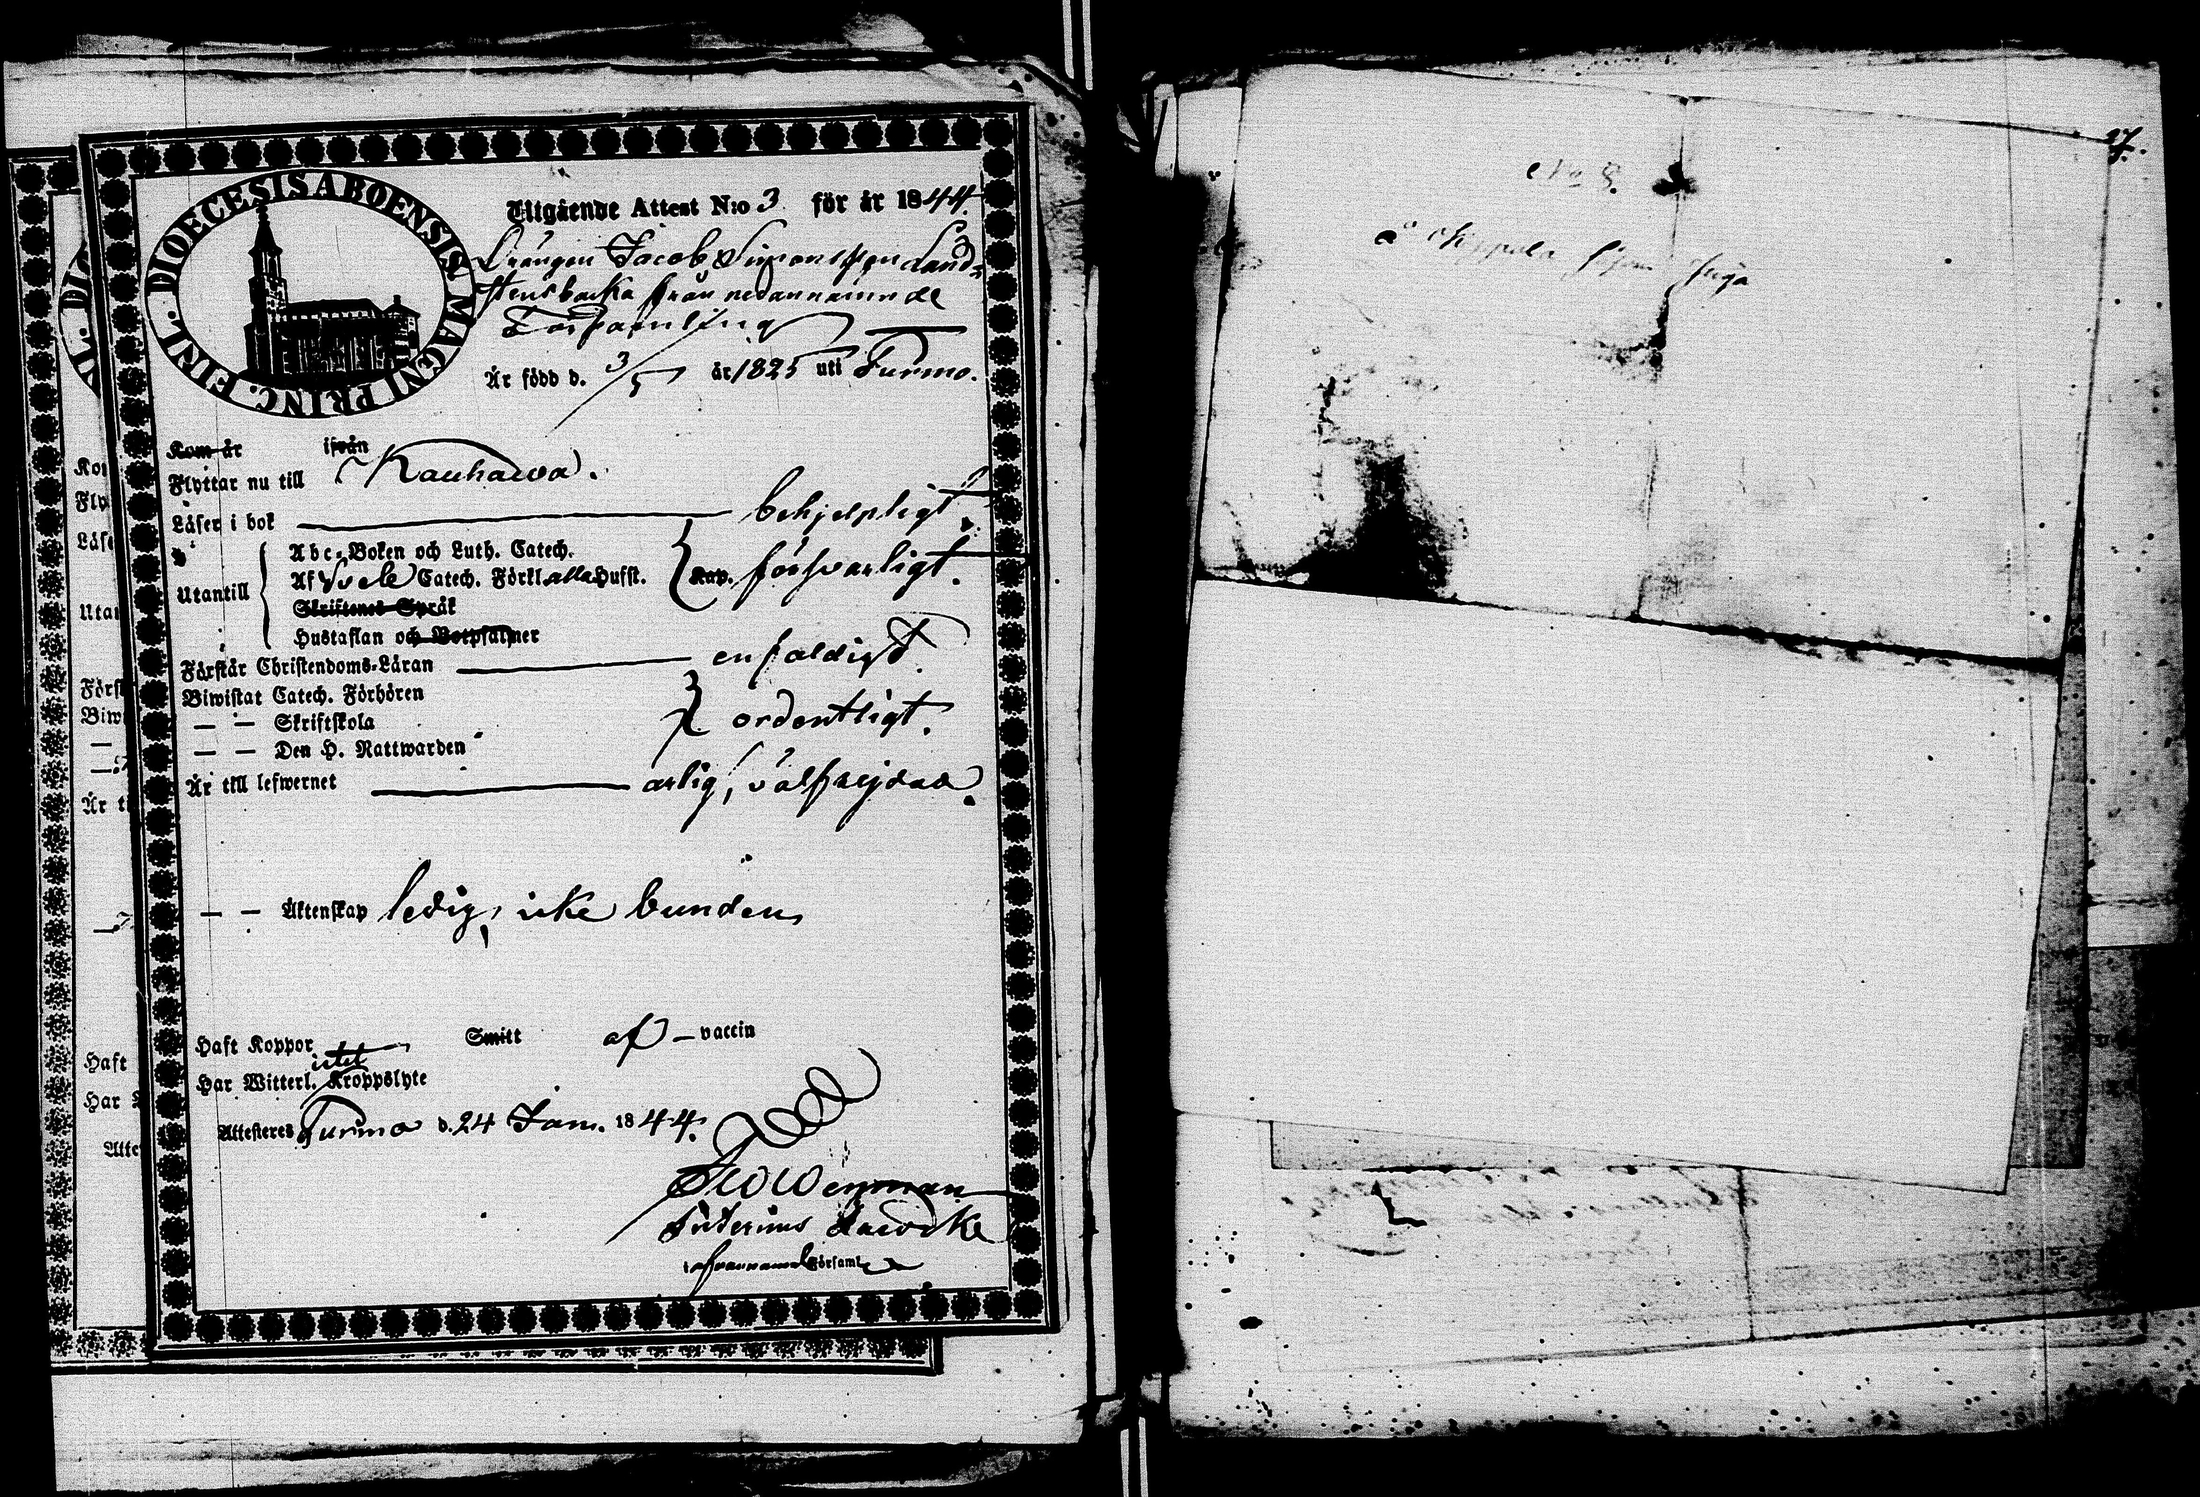 DIOECESIS ABOENSIS MAGNI PRINC. FINL.
Utgående Attest N:o 3 för år 1844.
Drängen Jacob Simonsson Land=
stensbacka från nedannämnde
Församling
Är född d. 3/5 år 1825 uti Purmo.
Kom år ifrån
Flyttar nu till Kauhawa.
Läser i bok behjelpligt
Abc-Boken och Luth. Catech.
Utantill Af Svebe Catech. Förkl. alla Hufst. Kap. försvarligt.
Skriftenes Språk
Hustaflan och Botpsalmer
Förstår Christendoms-Läran enfaldigt.
Biwistat Catech. Förhören
— — Skriftskola ordentligt.
— — Den H. Nattwarden
Är till lefwernet ärlig, välfrejdad.
— — Äktenskap ledig, icke bunden
Haft Koppor Smitt af — vaccin
intet
Har Witterl. Kroppslyte
Attesteres Purmo d. 24 Jan. 1844.
Interims
Församl
27.
No 8.